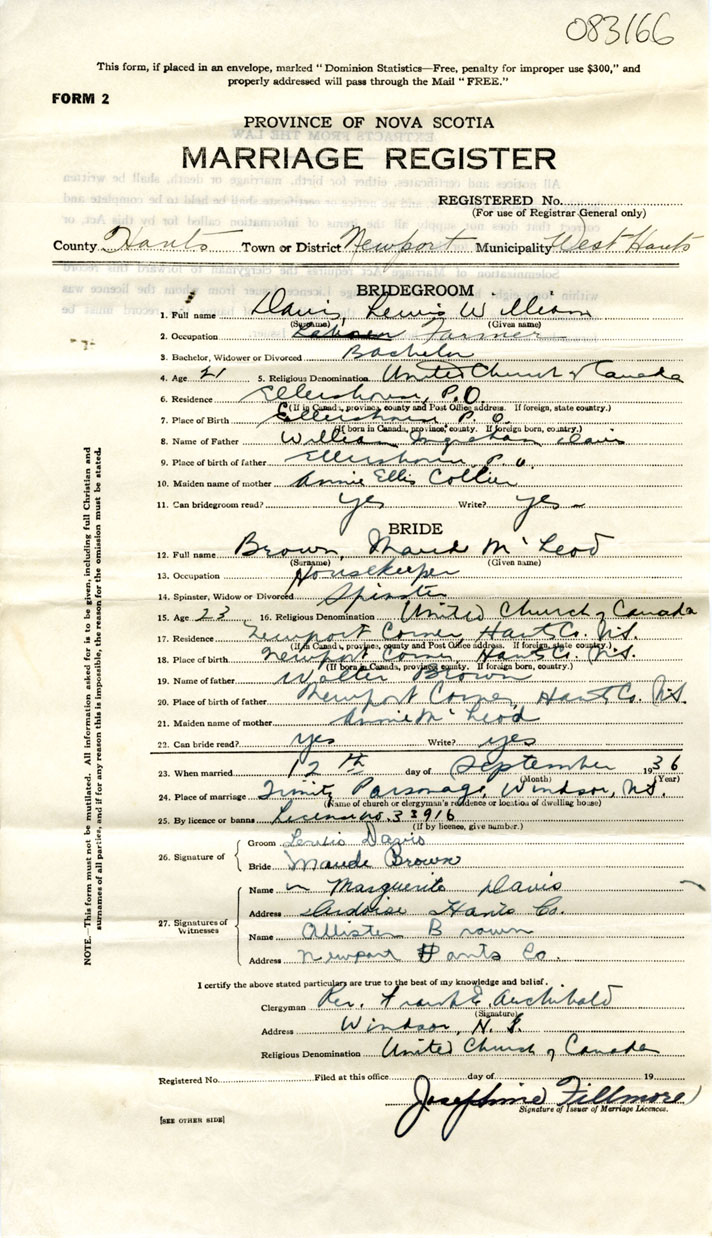 083166
This form, if placed in an envelope, marked "Dominion Statistics—Free, penalty for improper use $300," and
properly addressed will pass through the Mail "FREE."
FORM 2
PROVINCE OF NOVA SCOTIA
MARRIAGE REGISTER
REGISTERED No.
(For use of Registrar General only)
County Hants Town or District Newport Municipality West Hants
BRIDEGROOM
1. Full name Davis, Lewis William
(Surname) (Given name)
2. Occupation Farmer
3. Bachelor, Widower or Divorced Bachelor
4. Age 21 5. Religious Denomination United Church of Canada
6. Residence Ellershouse, P.O.
(If in Canada, province, county and Post Office address. If foreign, state country.)
7. Place of Birth Ellershouse P.O.
(If born in Canada, province, county. If foreign born, country.)
8. Name of Father William Ingraham Davis
9. Place of birth of father Ellershouse P.O.
10. Maiden name of mother Annie Ellis Collier
11. Can bridegroom read? yes Write? yes
BRIDE
12. Full name Brown, Maud Mc Leod
(Surname) (Given name)
13. Occupation Housekeeper
14. Spinster, Widow or Divorced Spinster
15. Age 23 16. Religious Denomination United Church of Canada
17. Residence Newport Corner, Hants Co. N.S.
(If in Canada, province, county and Post Office address. If foreign, state country.)
18. Place of birth Newport Corner, Hants Co. N.S.
(If born in Canada, province, county. If foreign born, country.)
19. Name of father Walter Brown
20. Place of birth of father Newport Corner, Hants Co. N.S.
21. Maiden name of mother Annie Mc Leod
22. Can bride read? yes Write? yes
23. When married 12th day of September 1936
(Month) (Year)
24. Place of marriage Parsonage, Windsor, N.S.
(Name of church or clergyman's residence or location of dwelling house)
25. By licence or banns License no. 33916
(If by licence, give number.)
26. Signature of
Groom Lewis Davis
Bride Maude Brown
27. Signatures of Witnesses
Name Marguerite Davis
Address Ardoise Hants Co.
Name Allister Brown
Address Newport Hants Co.
I certify the above stated particulars are true to the best of my knowledge and belief.
Clergyman Rev. Frank E. Archibald
(Signature)
Address Windsor, N.S.
Religious Denomination United Church of Canada
Registered No. Filed at this office day of 19
Josephine Fillmore
Signature of Issuer of Marriage Licences.
[SEE OTHER SIDE]
NOTE.—This form must not be mutilated. All information asked for is to be given, including full Christian and
surnames of all parties, and if for any reason this is impossible, the reason for the omission must be stated.